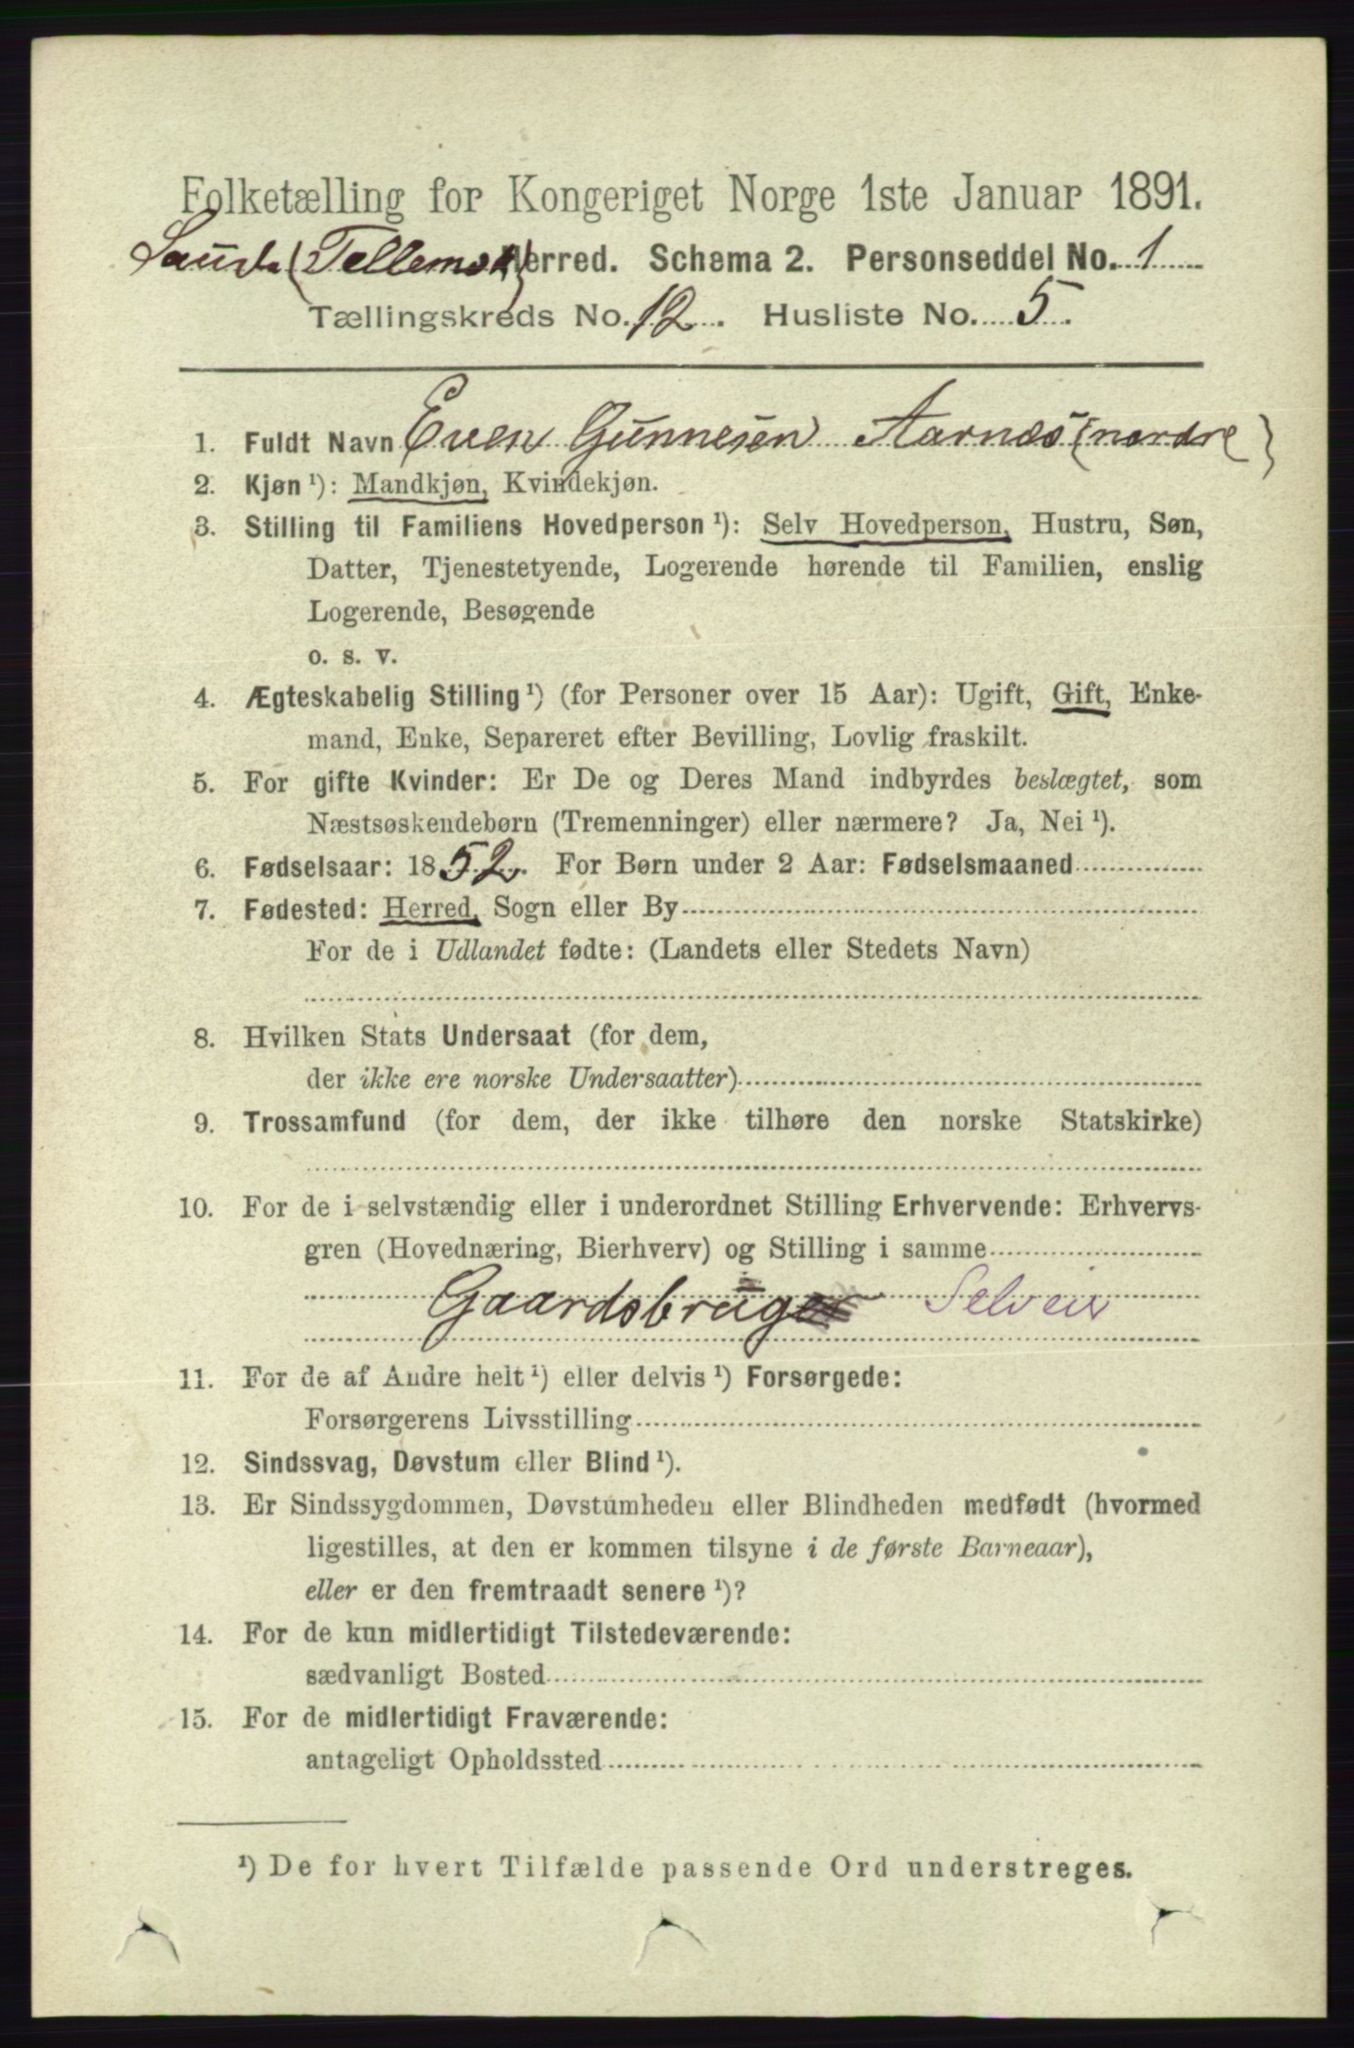 Folketælling for Kongeriget Norge 1ste Januar 1891.
Saude (Tellemk) Herred. Schema 2. Personseddel No. 1
Tællingskreds No. 12. Husliste No. 5.
1. Fuldt Navn Even Gunnesen Aarnes (nordre)
2. Kjøn ¹): Mandkjøn, Kvindekjøn.
3. Stilling til Familiens Hovedperson ¹): Selv Hovedperson, Hustru, Søn,
Datter, Tjenestetyende, Logerende hørende til Familien, enslig
Logerende, Besøgende
o. s. v.
4. Ægteskabelig Stilling ¹) (for Personer over 15 Aar): Ugift, Gift, Enke-
mand, Enke, Separeret efter Bevilling, Lovlig fraskilt.
5. For gifte Kvinder: Er De og Deres Mand indbyrdes beslægtet, som
Næstsøskendebørn (Tremenninger) eller nærmere? Ja, Nei ¹).
6. Fødselsaar: 1852. For Børn under 2 Aar: Fødselsmaaned
7. Fødested: Herred, Sogn eller By
For de i Udlandet fødte: (Landets eller Stedets Navn)
8. Hvilken Stats Undersaat (for dem,
der ikke ere norske Undersaatter)
9. Trossamfund (for dem, der ikke tilhøre den norske Statskirke)
10. For de i selvstændig eller i underordnet Stilling Erhvervende: Erhvervs-
gren (Hovednæring, Bierhverv) og Stilling i samme
Gaardsbruger Selveier
11. For de af Andre helt ¹) eller delvis ¹) Forsørgede:
Forsørgerens Livsstilling
12. Sindssvag, Døvstum eller Blind ¹).
13. Er Sindssygdommen, Døvstumheden eller Blindheden medfødt (hvormed
ligestilles, at den er kommen tilsyne i de første Barneaar),
eller er den fremtraadt senere ¹)?
14. For de kun midlertidigt Tilstedeværende:
sædvanligt Bosted
15. For de midlertidigt Fraværende:
antageligt Opholdssted
¹) De for hvert Tilfælde passende Ord understreges.